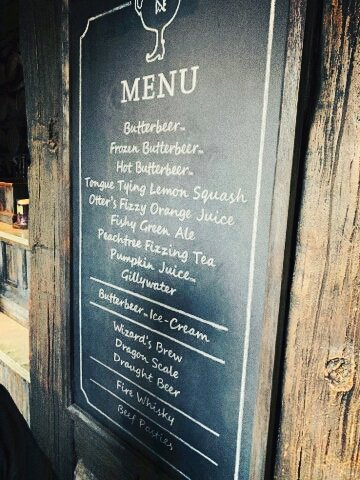 MENU
Butterbeer™
Frozen Butterbeer™
Hot Butterbeer™
Tongue Tying Lemon Squash
Otter's Fizzy Orange Juice
Fishy Green Ale
Peachtree Fizzing Tea
Pumpkin Juice™
Gillywater
Butterbeer™ Ice-Cream
Wizard's Brew
Dragon Scale
Draught Beer
Fire Whisky
Beef Pasties